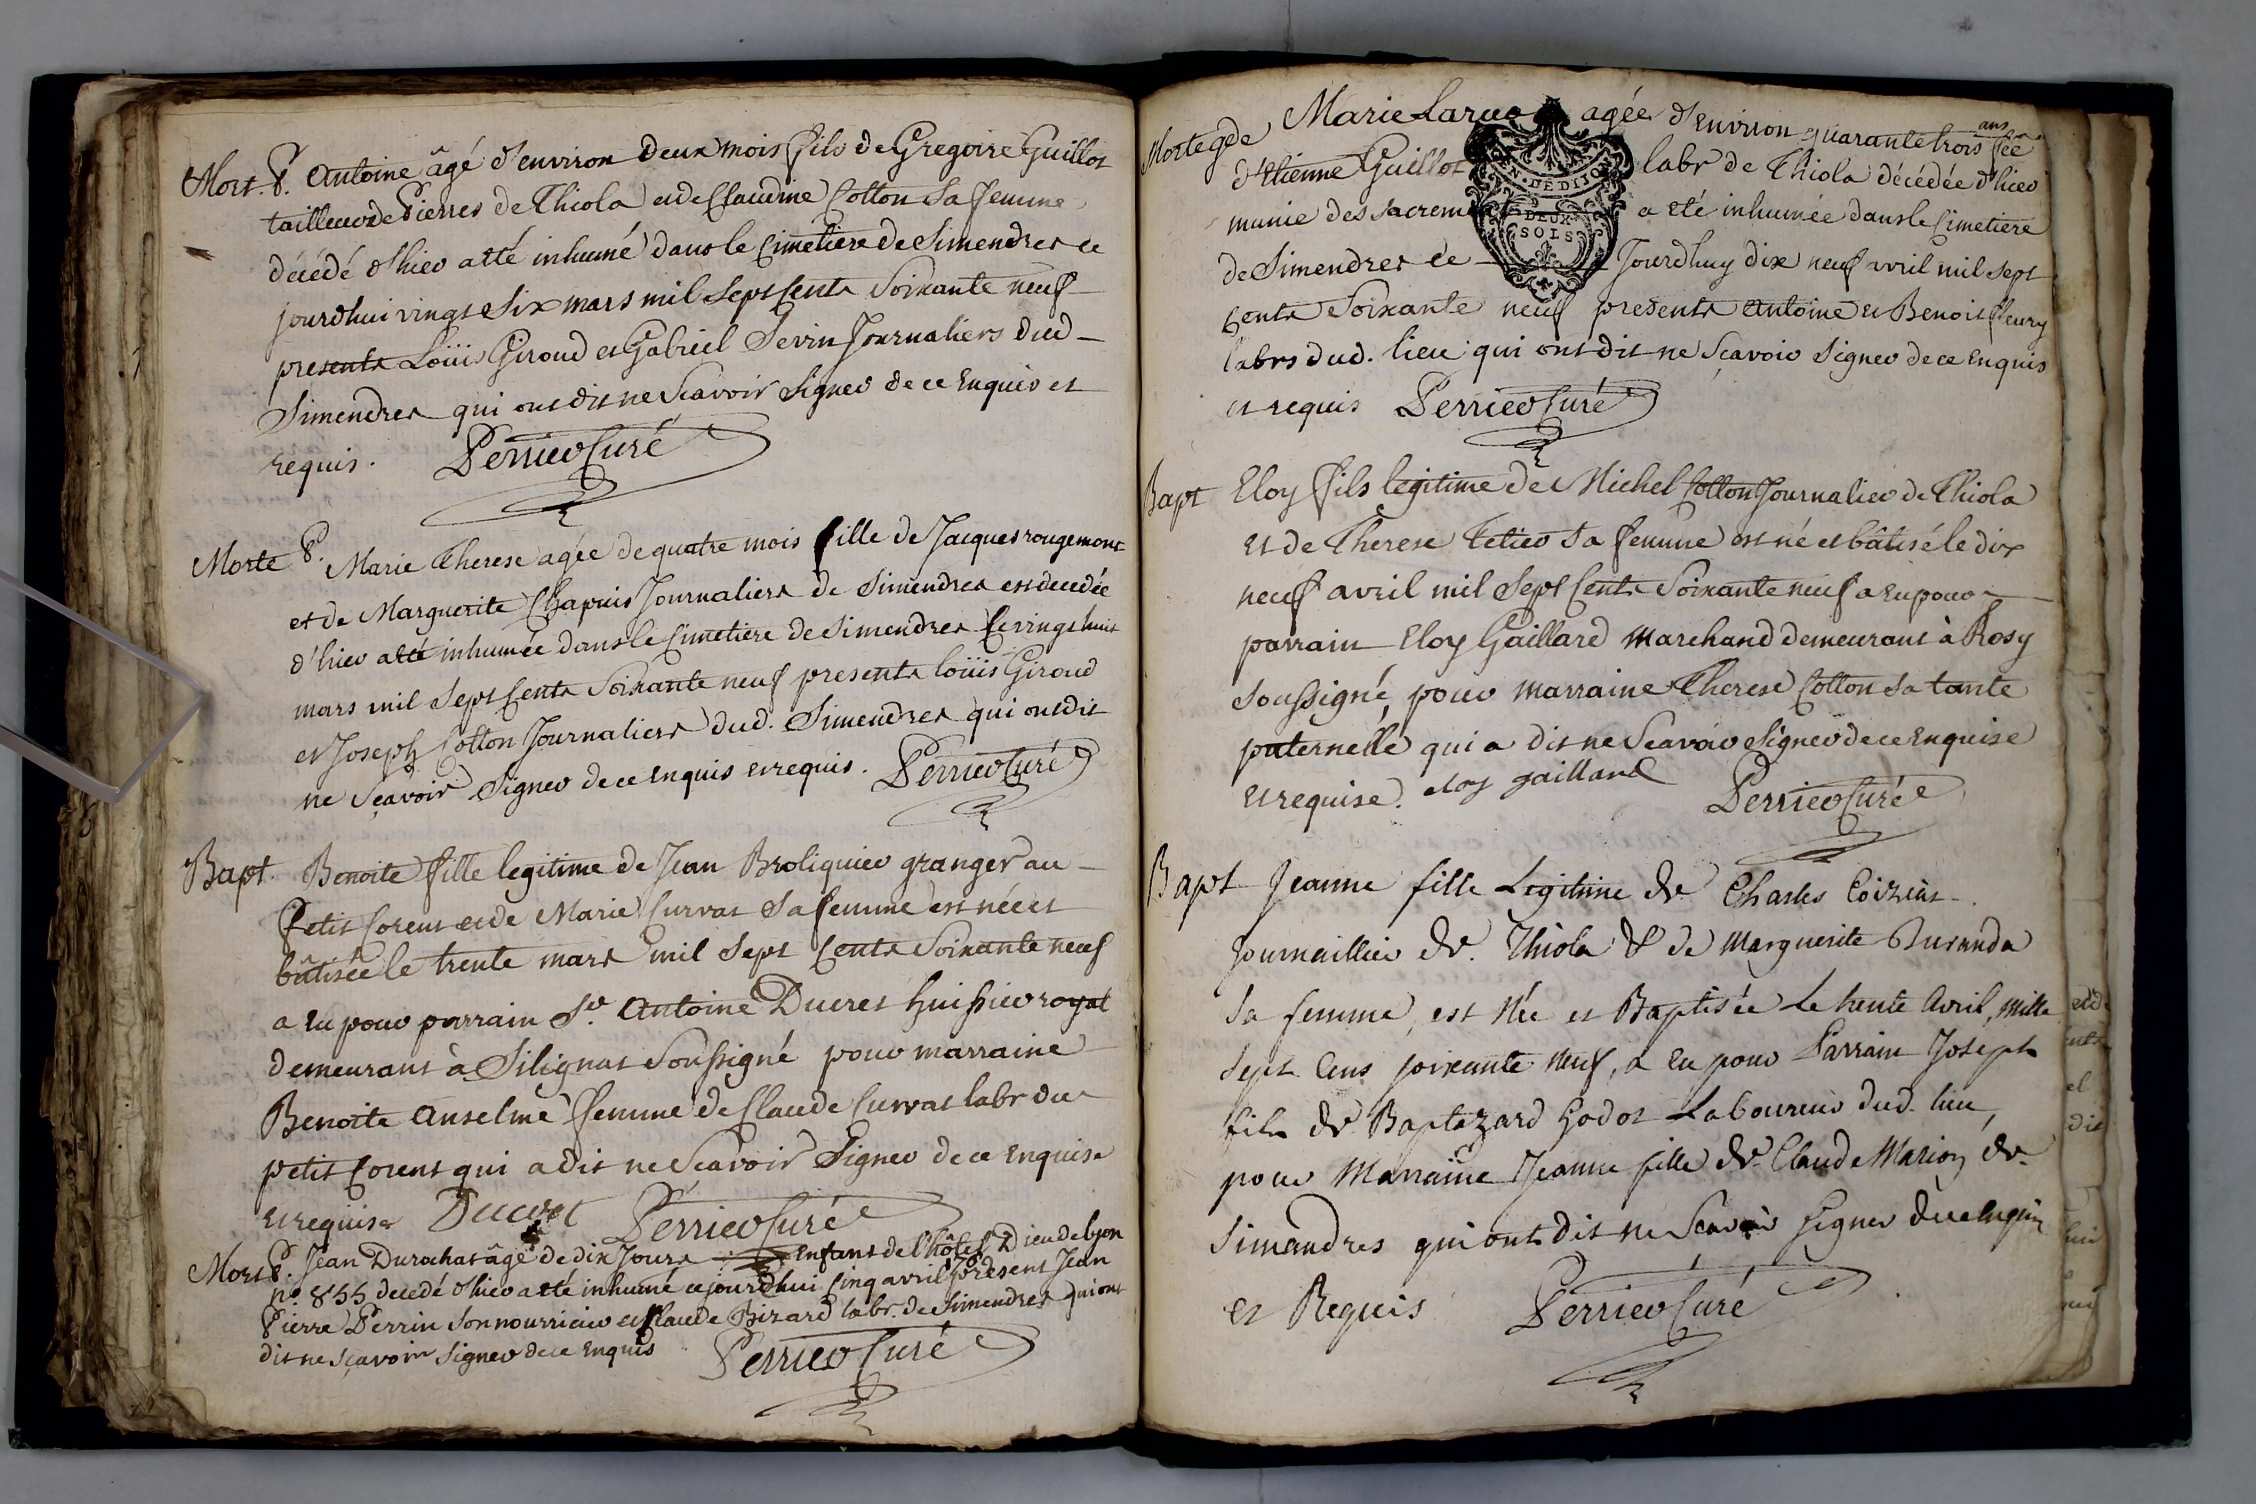 Mort. P. Antoine âgé d'environ deux mois fils de Gregoire Guillot
tailleur de Pierres de Thiola et de Claudine Cotton sa femme
décédé d'hier a été inhumé dans le Cimetiere de Simendres ce
jourdhui vingt six mars mil sept cents soixante neuf
presents Loüis Giroud et Gabriel Sevin Journaliers dud
Simendres qui ont dit ne scavoir signer de ce Enquis et
requis. Perrier Curé
Morte P. Marie Therese agée de quatre mois fille de Jacques rougemont
et de Marguerite Chapuis Journaliers de Simendres est decedée
d'hier a eté inhumée dans le Cimetiere de Simendres Le vingt huit
mars mil sept Cents soixante neuf presents loüis Giroud
et Joseph Cotton Journaliers dud. Simendres qui ont dit
ne sçavoir signer de ce Enquis et requis. Perrier Curé
Bapt. Benoite fille legitime de Jean Broliquier granger au
Petit Corent et de Marie Curvat sa femme est née et
bâtisée le trente mars mil sept Cents soixante neuf
a eu pour parrain Sr. Antoine Ducret huissier royal
demeurant à Silignat soussigné pour marraine
Benoite Anselme femme de Claude Curvat labr du
petit Corent qui a dit ne scavoir signer de ce enquise
et requise Ducret Perrier Curé
Mort P. Jean Durochat âgé de dix jours Enfant de l'hôtel Dieu de lyon
n° 855 decedé d'hier a eté inhumé ce jourdhui Cinq avril present Jean
Pierre Perrin son nourricier et Claude Bizard labr. de Simendres qui ont
dit ne sçavoir signer de ce Enquis Perrier Curé
Morte gde Marie Larue agée d'environ quarante trois ans fée
d'Etienne Guillot labr de Thiola décédée d'hier
munie des sacrem a eté inhumée dans le Cimetiere
de Simendres ce Jourdhuy dix neuf avril mil sept
Cents soixante neuf presents Antoine et Benoit fleury
labrs dud. lieu qui ont dit ne sçavoir signer de ce Enquis
et requis Perrier Curé
GEN. DE DIJON
DEUX
SOLS
Bapt Eloy fils legitime de Michel Cotton Journalier de Thiola
et de Therese Tetier sa femme est né et bâtisé le dix
neuf avril mil sept Cents soixante neuf a eu pour
parrain Eloy Gaillard marchand demeurant à Rosy
soussigné, pour marraine Therese Cotton sa tante
paternelle qui a dit ne scavoir signer de ce enquise
et requise. eloy gaillard Perrier Curé
Bapt Jeanne fille Legitime de Charles
Journaillier de Thiola & de Marguerite Buranda
sa femme, est Née et Baptisée Le trente Avril, mille
sept Cens soixante neuf, a eu pour Parrain Joseph
fils de Baptazard Godot Laboureur dud. lieu,
pour Marraine Jeanne fille de Claude Marion de
Simandres qui ont dit ne scavoir signer de ce enquis
et Requis Perrier Curé